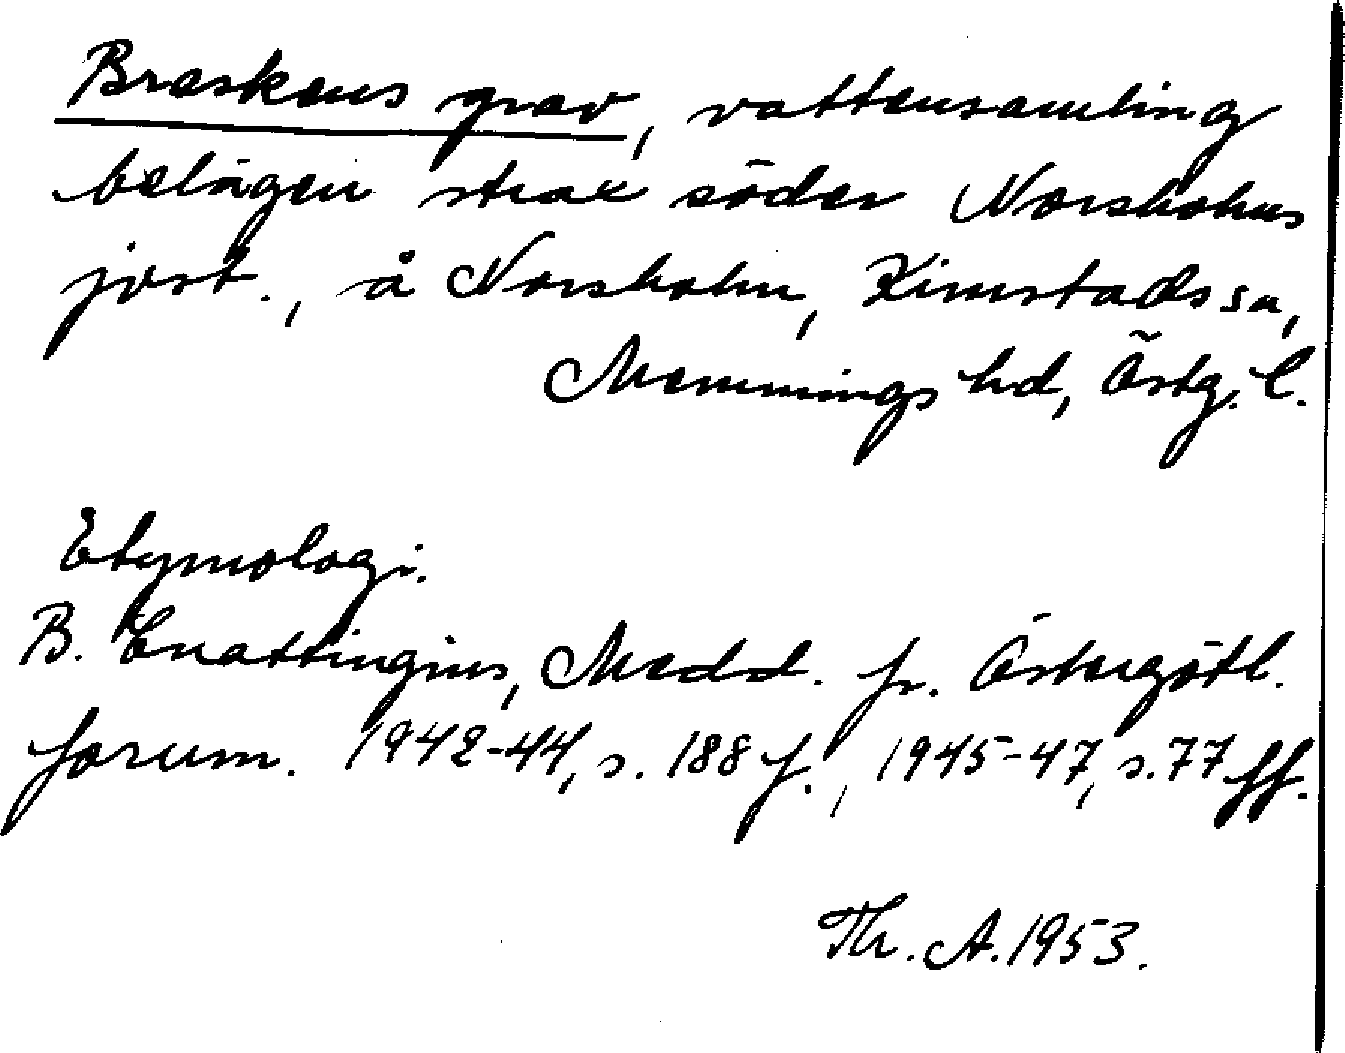 Braskens grav, vattensamling
belägen strax söder Norsholms
jvst., å Norsholm, Kimstads sn,
Memmings hd, Östg. l.
Etymologi.
B. Cnattingius, Medd. fr. Östergötl.
fornm. 1942-44, s. 188 f., 1945-47, s. 77 ff.
Th. A. 1953.